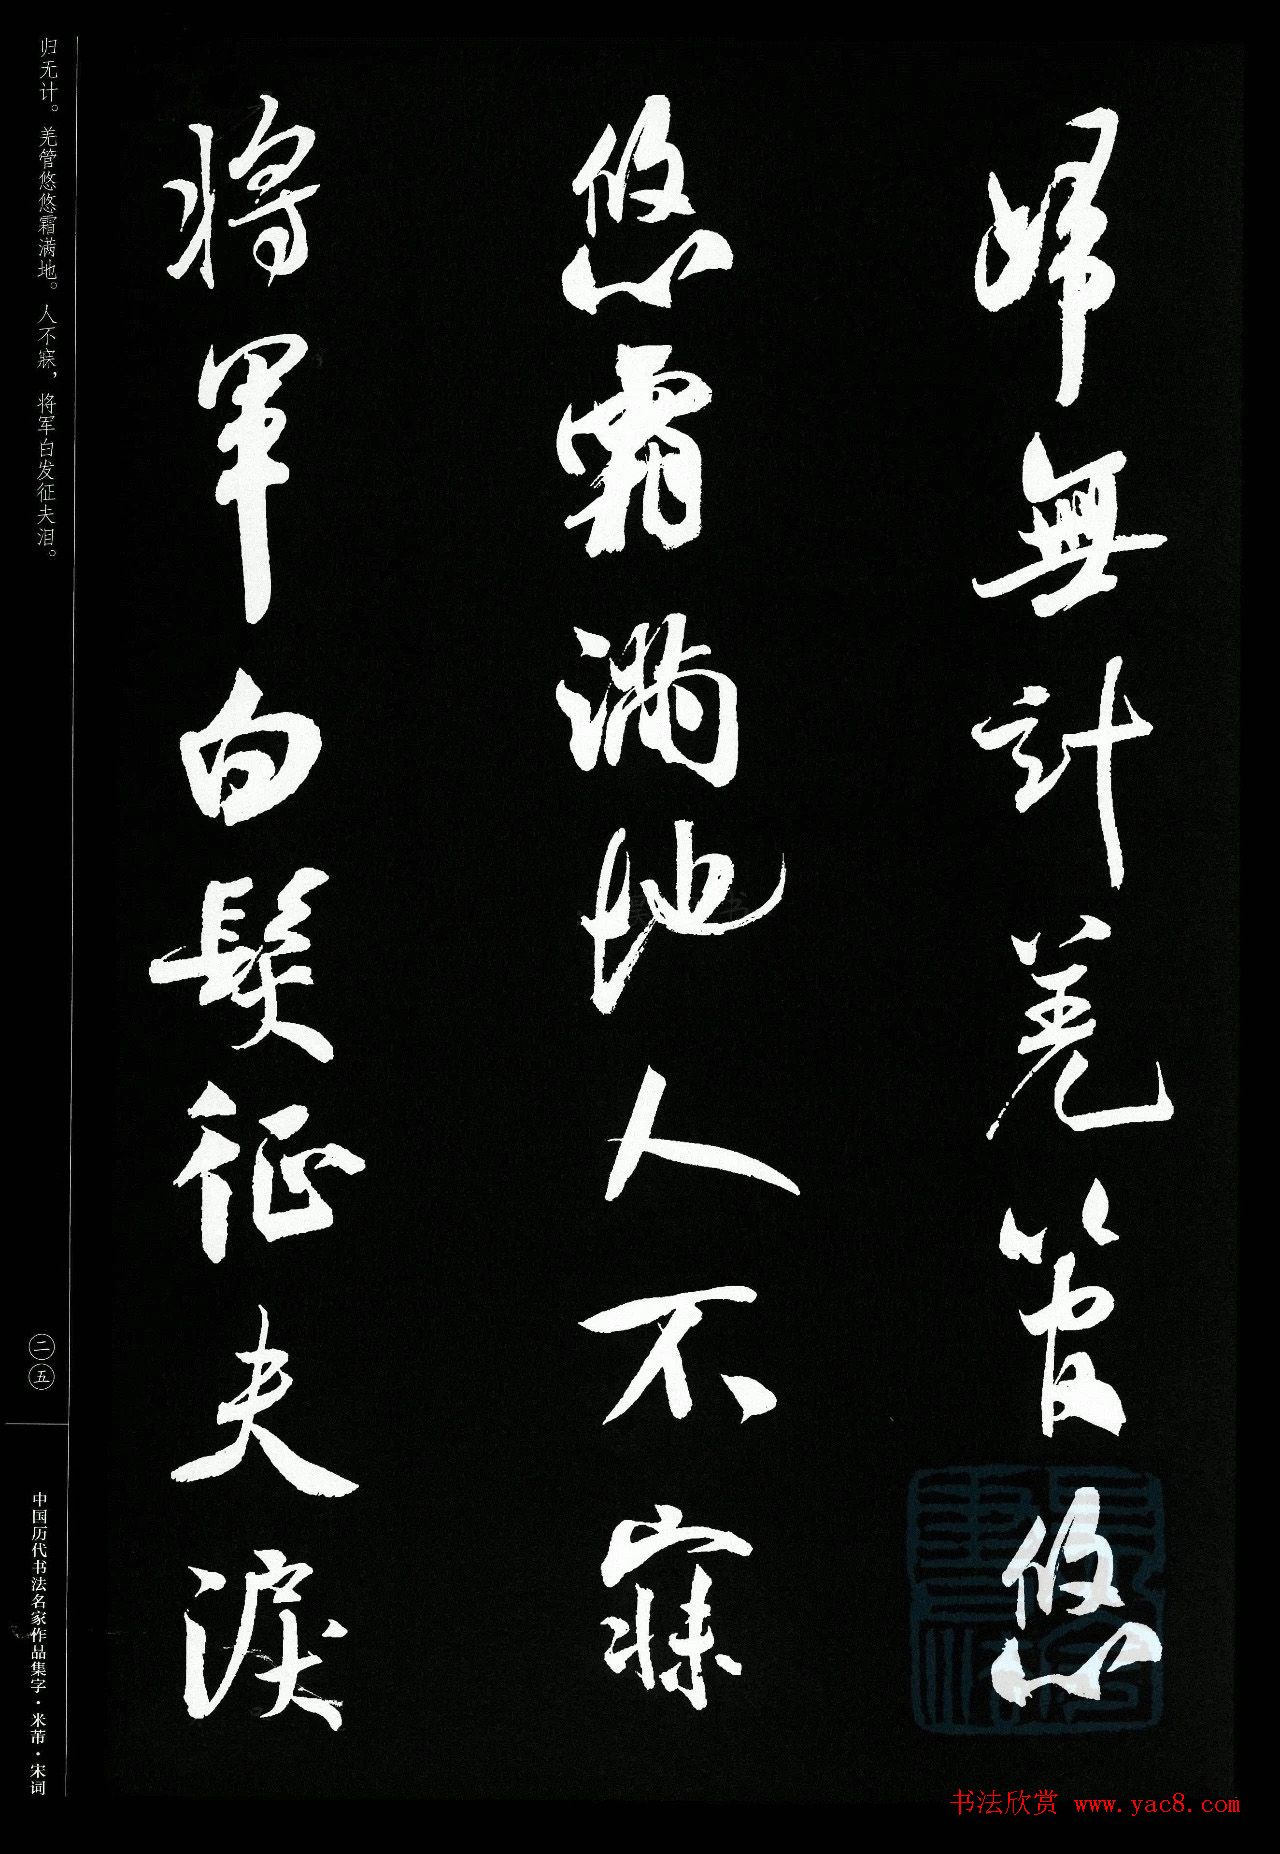 歸無計羌管悠
悠霜滿地人不寐
將軍白髮征夫淚
归无计。羌管悠悠霜满地。人不寐，将军白发征夫泪。
二五
中国历代书法名家作品集字·米芾·宋词
书法欣赏 www.yac8.com